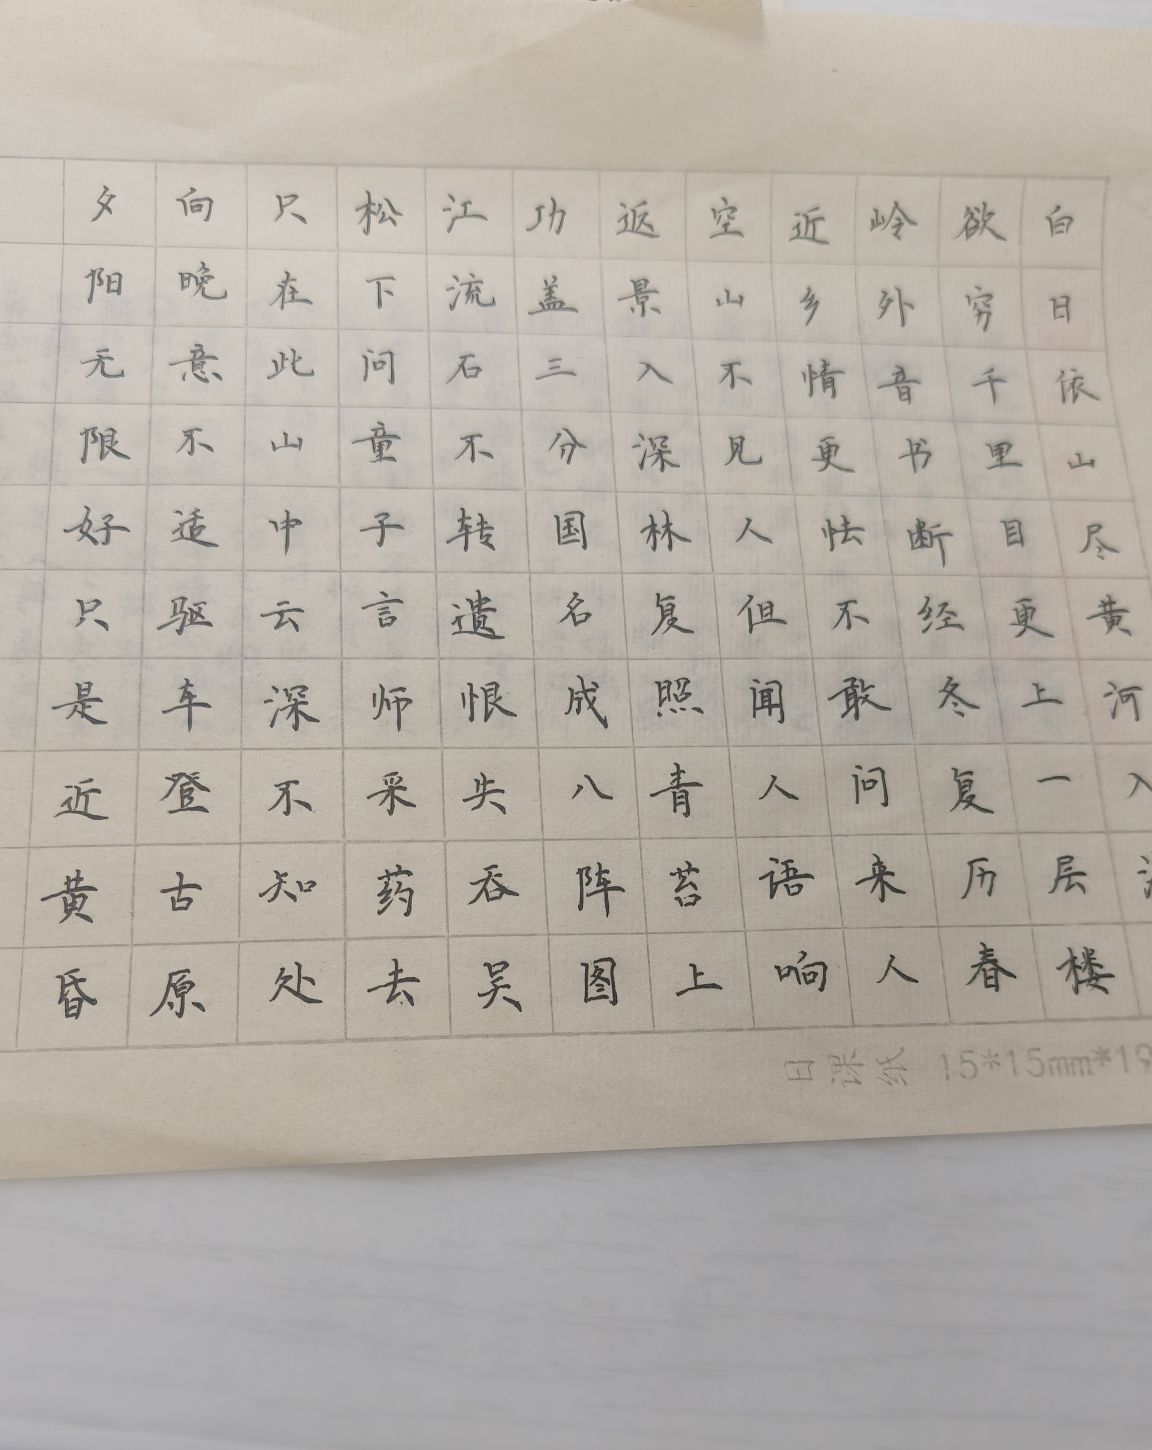 白日依山尽黄河入
欲穷千里目更上一层楼
岭外音书断经冬复历春
近乡情更怯不敢问来人
空山不见人但闻人语响
返景入深林复照青苔上
功盖三分国名成八阵图
江流石不转遗恨失吞吴
松下问童子言师采药去
只在此山中云深不知处
向晚意不适驱车登古原
夕阳无限好只是近黄昏
日课纸 15*15mm*19